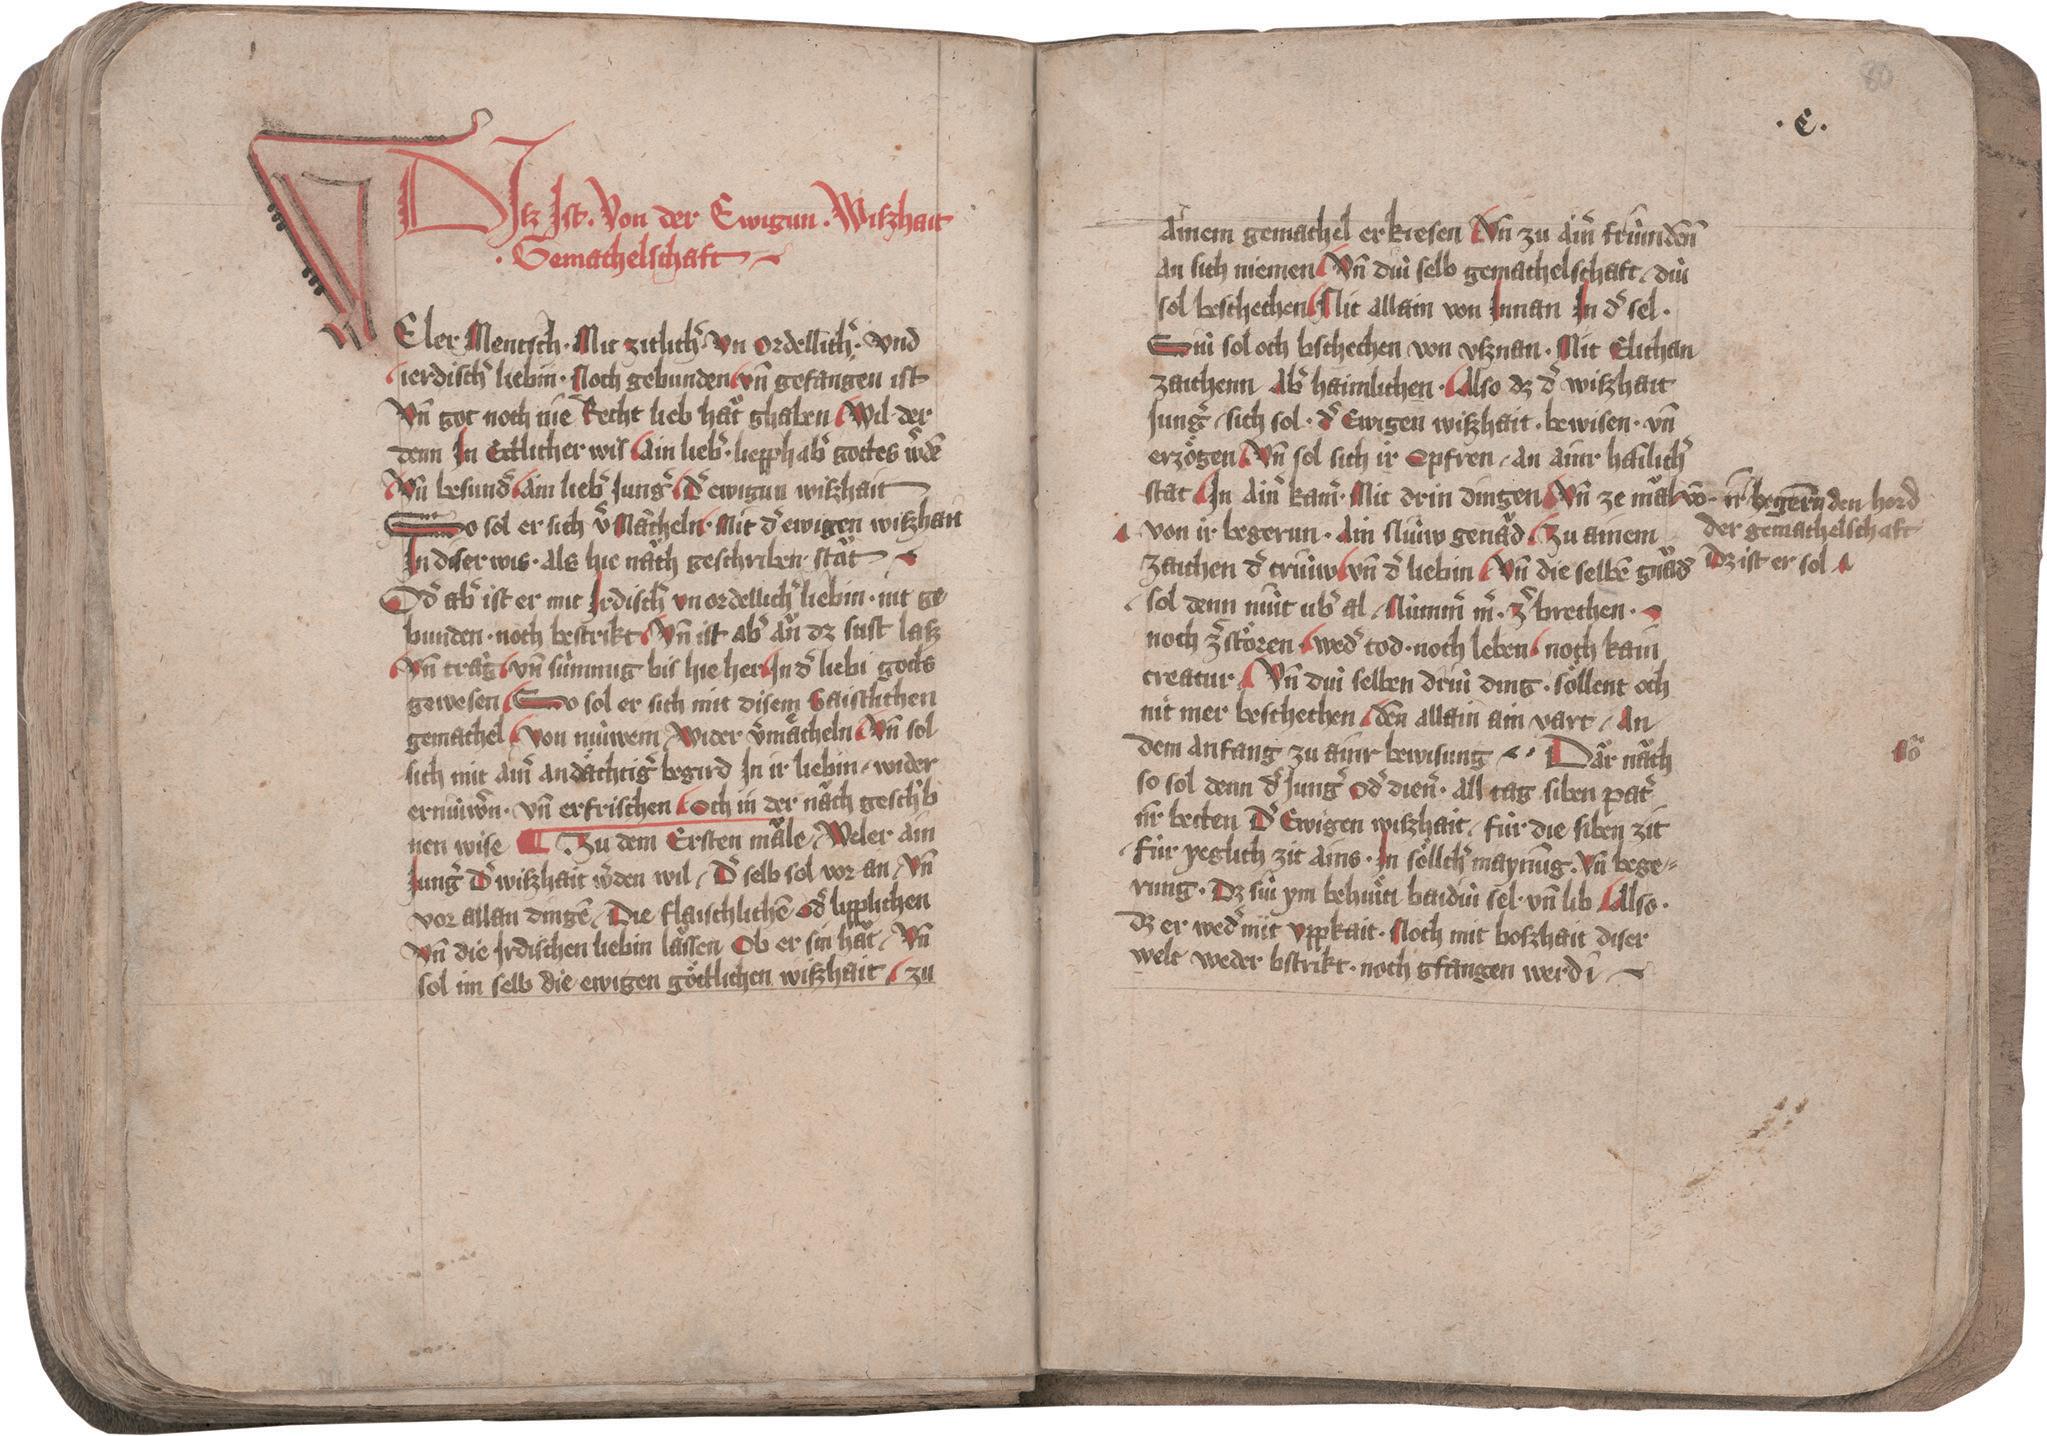 DIsz Ist. Von der Ewigun. Wiszhait
. Gemachelschaft
WEler Mentsch. Mit zitlicħ. vn ordellicħ. vnd
ierdiscħ liebin. Noch gebunden vn̄ gefangen ist
Vn̄ got noch nie Recht lieb hat ghaben Wil der
denn In Ettlicher wis Ain lieb̾. liepphab̾ gottes w̾dē
Vn̄ besund̾ Ain lieb̾ Jung̾ D̾ ewigun wiszhait
So sol er sich v̾Mächeln. Mit d̾ ewigen wiszhait
In diser wis. als hie näch geschriben. stät
Od̾ ab̾ ist er mit Irdiscħ vnordellicħ liebin. nit ge
bunden. noch bestrikt Vn̄ ist ab̾ än dz sust lasz
Vn̄ träg vn̄ sümnug bis hie her In d̾ liebi gotts
gewesen So sol er sich mit disem Gaistlichen
gemachel Von nüwem Wider v̾mächeln Vn̄ sol
sich mit ain̾ andächtig̾ begird In ir liebin wider
ernüw̾n. vn̄ erfrischen Och in der näch gesch̾b
nen wise Zu dem Ersten mäle Weler ain
Jung̾ D̾ wiszhait w̾den wil D̾ selb sol vor an Vn̄
vor allan dingē Die flaischlichē Od̾ lipplichen
Vn̄ die Irdischen liebin lässen Ob er sin hät Vn̄
sol im selb die ewigen götlichen wiszhait zu
80
. C .
ainem gemachel erkiesen Vn̄ zu ain̾ fründen̄
an sich niemen Vn̄ dü selb gemachelschaft dü
sol beschechen Nit allain von Innan In d̾ sel.
Sü sol och bschechen von vsznan. Mit Elichan
zaichenn Ab̾ haimlichen. Also dz d̾ wiszhait
Jung̾ sich sol. d̾ Ewigen wiszhait. bewisen. vn̄
erzögen Vn̄ sol sich ir Opfren an ainr hailicħ
stat In ain̾ kam̾. Mit drin dingen Vn̄ ze mäl
von ir begerun. Ain Nüw genäd Zu ainem
zaichen d̾ trüw vn̄ d̾ liebin Vn̄ die selbē gnäd
sol denn nüt ub̾ al Nümm̾ m̾. z̾brechen.
noch z̾stören. wed̾ tod. noch leben noch kain
creatur Vn̄ dü selben drü ding. söllent och
nit mer beschechen den allain ain vart An
dem anfang zu ainr bewisung Där näch
so sol denn d̾ Jung̾ Od̾ dien̾. all tag siben pat̾
nr̄ betten D̾ Ewigen wiszhait für die siben zit
für yeglich zit ains. In söllicħ maynūg. Vn̄ bege=
rung. Dz sü ym behuti baidü sel. vn̄ lib Also.
Dz er wed̾ mit vppkait. Noch mit boszhait diser
welt weder bstrikt. noch gfangen werdī
begern den hord
der gemachelschaft
Dz ist er sol